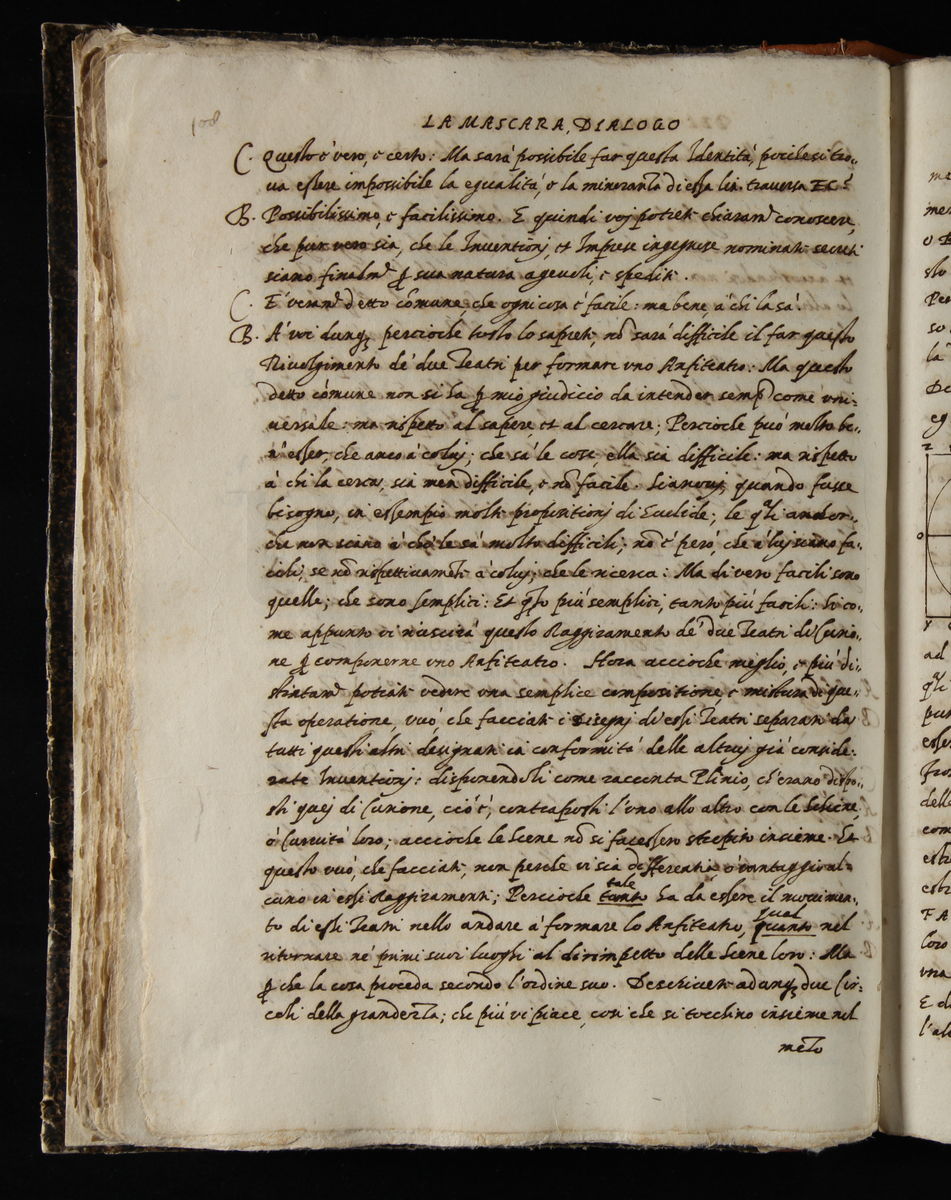 108
LA MASCARA, DIALOGO
C. Questo è vero, e certo: Ma sarà possibile far questa Identità, poiche si tro-
ua essere impossibile la egualità, o la minoranza di essa lin. trauersa EC?
B. Possibilissimo, e facilissimo. E quindi voi potrete chiaram.te conoscere,
che pur vero sia, che le Inuentionj, et Imprese ingegnose nominate secreti
siano finalm.te p sua natura ageuoli, e spedite.
C. E' veram.te detto cõmune, che ogni cosa è facile: ma bene, à chi la sà.
B. A' voi dunq; percioche tosto lo saprete, nõ sarà difficile il far questo
Riuolgimento de' due Teatri per formare vno Anfiteatro: Ma questo
detto cómune non si ha p mio giudicio da intender semp come vni-
uersale: ma rispetto al sapere, et al cercare; Percioche può molto be-
n' esser, che anco à coluj, che sà le cose, ella sia difficile: ma rispetto
à chi la cerca, sia men difficile, e nõ facile. Sianouj, quando fusse
bisogno, in essempio molte propositionj di Euclide; le q.li anchor-
che non siano à chi le sà molto difficili; nõ è però, che à luj siano fa-
cili, se nõ rispettiuamẽte à coluj, che le ricerca: Ma di vero facili sono
quelle; che sono semplici: Et q.to più semplici, tanto più facili: Si co-
me appunto vi riuscirà questo Raggiramento de' due Teatri di Curio-
ne p componerne vno Anfiteatro. Hora accioche meglio, e più di-
stintam.te potiate vedere vna semplice compositione, e mistura di que-
sta operatione, vuò che facciate i Disegnj di essi Teatri separati da
tutti questi altri designati in conformità delle altruj già conside-
rate Inuentionj: disponendoli come racconta Plinio, ch'erano dispo-
sti quej di Curione, ciò è, contraposti l'uno allo altro con le Schiene,
ò Curuità loro; accioche le Scene nõ si facessero strepito insieme. Et
questo vuò, che facciate, non perche vi sia differentia ò vantaggio al-
cuno in essi Raggiramenti; Percioche tanto tale ha da essere il mouimen-
to di essi Teatri nello andare à formare lo Anfiteatro, quanto qual nel
ritornare nè primi suoi luoghi al dirimpetto delle Scene loro: Ma
p che la cosa proceda secondo l'ordine suo. Descriuete adunq; due Cir-
coli della grandezza; che più vi piace, cosi che si tocchino insieme nel
mezo